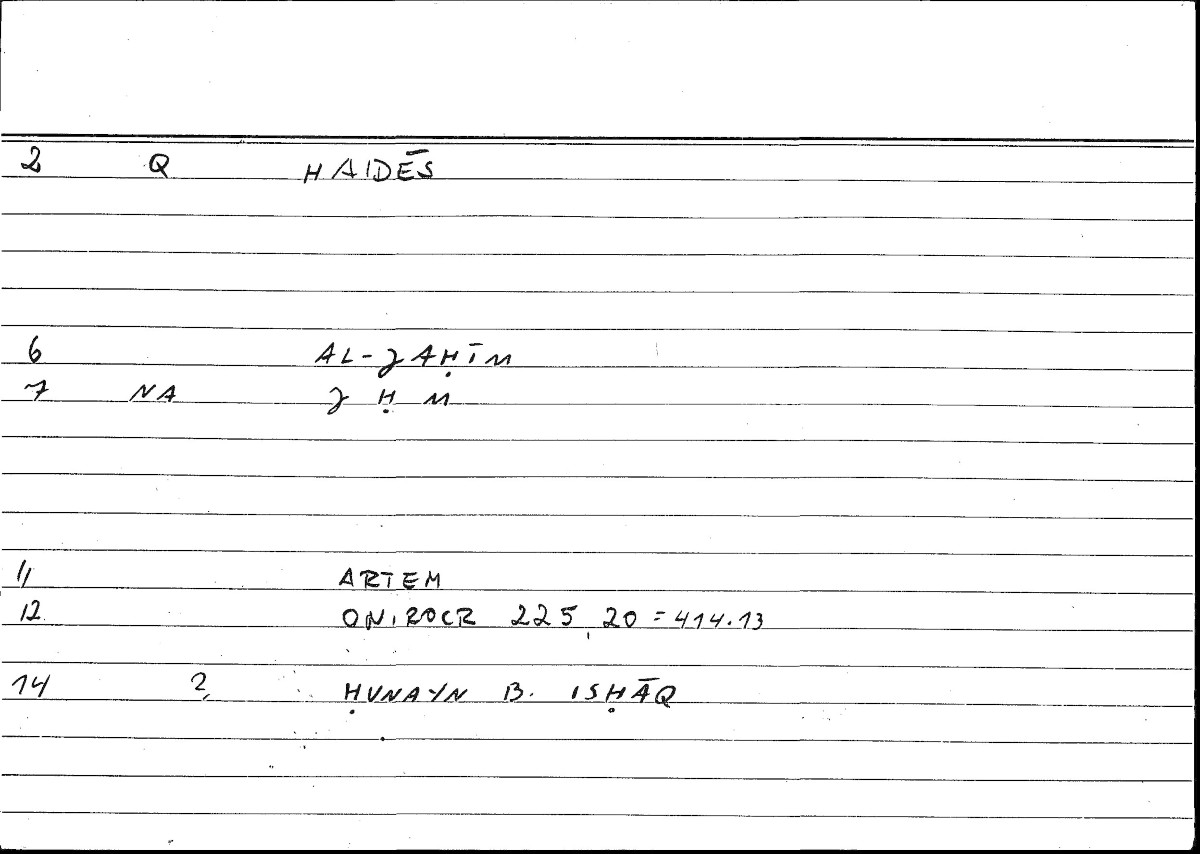 2 Q HAIDĒS
6 AL-ǦAḤĪM
7 NA Ǧ Ḥ M
11 ARTEM
12 ONIROCR 225,20 = 414.13
14 2 ḤUNAYN B. ISḤĀQ